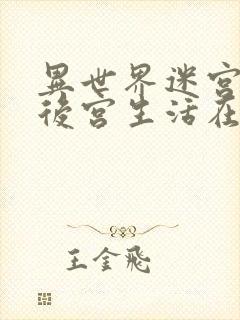 異世界迷宮
後宮生活在
王金飛